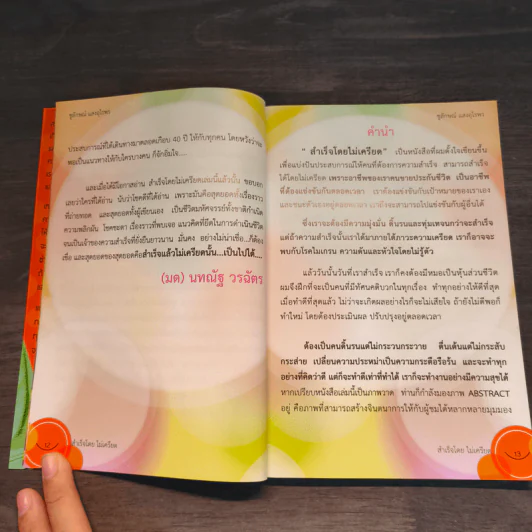 ชูลักษณ์ แสงอุไรพร
ประสบการณ์ที่ได้เดินทางมาตลอดเกือบ 40 ปี ให้กับทุกคน โดยหวังว่าจะ
พอเป็นแนวทางให้กับใครบางคน ก็อีกอิ่มใจ....
และเมื่อได้มีโอกาสอ่าน สำเร็จโดยไม่เครียดเล่มนี้แล้วนั้น ขอบอก
เลยว่าใครที่ได้อ่าน นับว่าโชคดีที่ได้อ่าน เพราะมันคือสุดยอดทั้งเรื่องราว
ที่ถ่ายทอด และสุดยอดทั้งผู้เขียนเอง เป็นชีวิตมหัศจรรย์ทั้งชาติกำเนิด
ความพลิกผัน โชคชะตา เรื่องราวที่พบเจอ แนวคิดที่ยึดในการดำเนินชีวิต
จนเป็นเจ้าของความสำเร็จที่ยั่งยืนยาวนาน มั่นคง อย่างไม่น่าเชื่อ...ก็ต้อง
เชื่อ และสุดยอดของสุดยอดคือสำเร็จแล้วไม่เครียดนั้น...เป็นไปได้.....
(มด) นทณัฐ วรฉัตร
12
สำเร็จโดย ไม่เครียด
ชูลักษณ์ แสงอุไรพร
คำนำ
" สำเร็จโดยไม่เครียด" เป็นหนังสือที่ผมตั้งใจเขียนขึ้น
เพื่อแบ่งปันประสบการณ์ให้คนที่ต้องการความสำเร็จ สามารถสำเร็จ
ได้โดยไม่เครียด เพราะอาชีพของเราคนขายประกันชีวิต เป็นอาชีพ
ที่ต้องแข่งขันกันตลอดเวลา เราต้องแข่งกับเป้าหมายของเราเอง
และชนะตัวเองอยู่ตลอดเวลา เรายังจะสามารถไปแข่งขันกับผู้อื่นได้
ซึ่งเราจะต้องมีความมุ่งมั่น ดิ้นรนและทุ่มเทจนกว่าจะสำเร็จ
แต่ถ้าความสำเร็จนั้นเราได้มาภายใต้ภาวะความเครียด เราก็อาจจะ
พบกับโรคไมเกรน ความดันและหัวใจโดยไม่รู้ตัว
แล้ววันนั้นวันที่เราสำเร็จ เราก็คงต้องมีหมอเป็นหุ้นส่วนชีวิต
ผมจึงฝึกที่จะเป็นคนที่มีทัศนคติบวกในทุกเรื่อง ทำทุกอย่างให้ดีที่สุด
เมื่อทำดีที่สุดแล้ว ไม่ว่าจะเกิดผลอย่างไรก็จะไม่เสียใจ ถ้ายังไม่ดีพอก็
ทำใหม่ โดยต้องประเมินผล ปรับปรุงอยู่ตลอดเวลา
ต้องเป็นคนดิ้นรนแต่ไม่กระวนกระวาย ตื่นเต้นแต่ไม่กระสับ
กระส่าย เปลี่ยนความประหม่าเป็นความกระตือรือร้น และจะทำทุก
อย่างที่คิดว่าดี แต่ก็จะทำดีเท่าที่ทำได้ เราก็จะทำงานอย่างมีความสุขได้
หากเปรียบหนังสือเล่มนี้เป็นภาพวาด ท่านก็กำลังมองภาพ ABSTRACT
อยู่ คือภาพที่สามารถสร้างจินตนาการให้กับผู้ชมได้หลากหลายมุมมอง
สำเร็จโดย ไม่เครียด
13